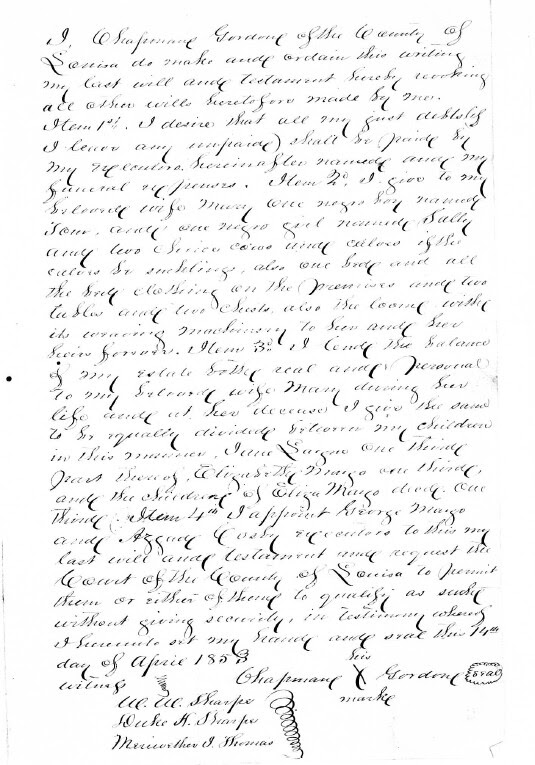 I, Chapman Gordon of the County of
Louisa do make and ordain this writing
my last will and testament hereby revoking
all other wills heretofore made by me.
Item 1st. I desire that all my just debts (if
I leave any unpaid) shall be paid by
my executors hereinafter named and my
funeral expenses. Item 2d. I give to my
beloved wife Mary one negro boy named
Tom, and one negro girl named Sally
and two choice cows and calves if the
calves be sucklings, also one bed and all
the bed clothing on the premises and two
tables and two chests, also the loom, with
its weaving machinery to her and her
heirs forever. Item 3d. I lend the balance
of my estate both real and personal
to my beloved wife Mary during her
life and at her decease I give the same
to be equally divided between my children
in this manner, Jane one third
part thereof, Elizabeth Mayo one third,
and the children of Eliza Mayo decd. one
third. Item 4th I appoint George Mayo
and Cosby executors to this my
last will and testament and request the
Court of the County of Louisa to permit
them or either of them to qualify as such
without giving security, in testimony whereof
I hereunto set my hand and seal this 14th
day of April 1853
his
Chapman X Gordon seal
mark
witness
W. W. Sharpe
Duke H. Sharpe
Meriwether J. Thomas